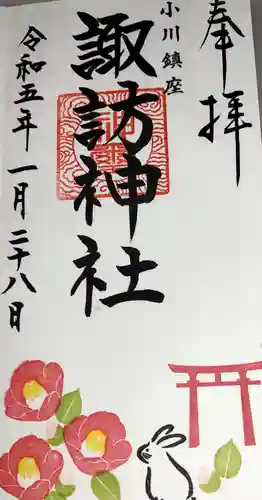 奉拝
小川鎮座
諏訪神社
令和五年一月二十八日